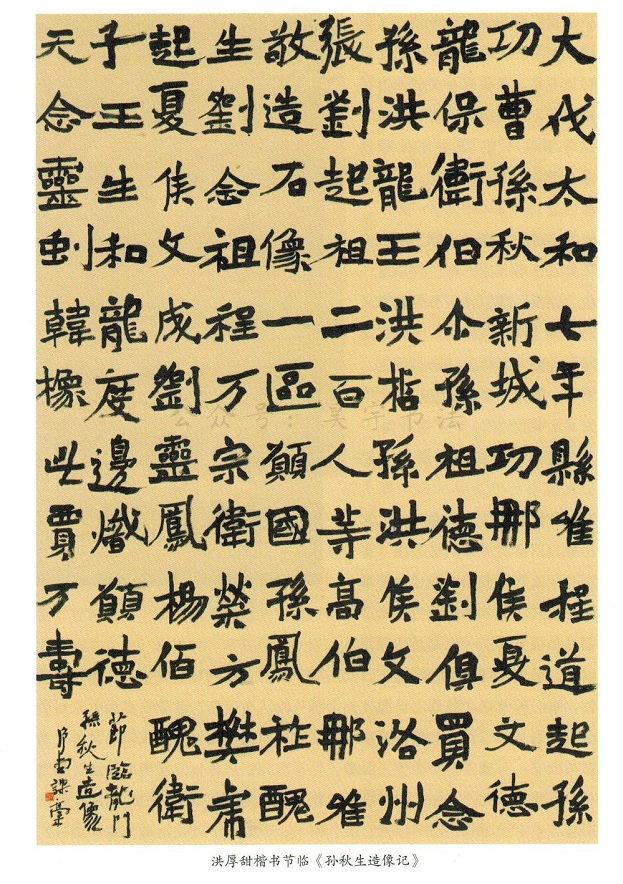 大伐太和七年縣唯程道起孫
功曹孫秋新城功那侯夏文德
龍保衛伯孫祖德劉俱買念
孫洪龍王洪孫洪侯文洛州
張劉起祖二百人等高伯那唯
敬造石像一區願國孫鳳祚醜
生劉念祖程万宗衛榮方樊虎
起夏侯文成劉靈鳳楊佰醜衛
子王生和龍度邊熾願德
天念靈虯韓橡此賈万壽
節臨龍門
孫秋生造像
公众号：昊宇书法
洪厚甜楷书节临《孙秋生造像记》